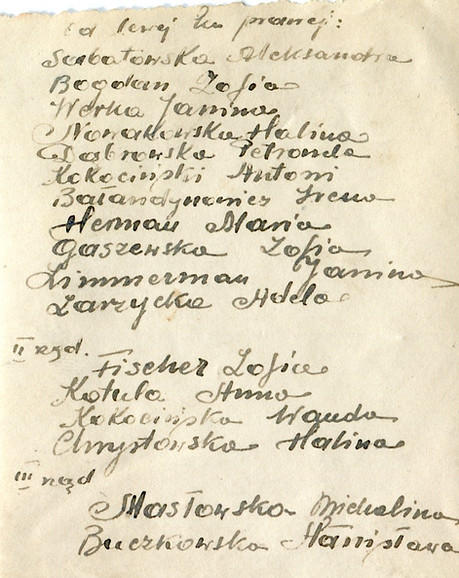 od lewej ku prawej:
Sabatowska Aleksandra
Bogdan Zofia
Werka Janina
Nowakowska Halina
Dąbrowska Petronela
Kokociński Antoni
Bałandynowicz Irena
Herman Maria
Gaszewska Zofia
Zimmerman Janina
Zarzycka Adela
II rząd.
Fischer Zofia
Kotula Anna
Kokocińska Wanda
Chrystowska Halina
III rząd
Masłowska Michalina
Buczkowska Stanisława